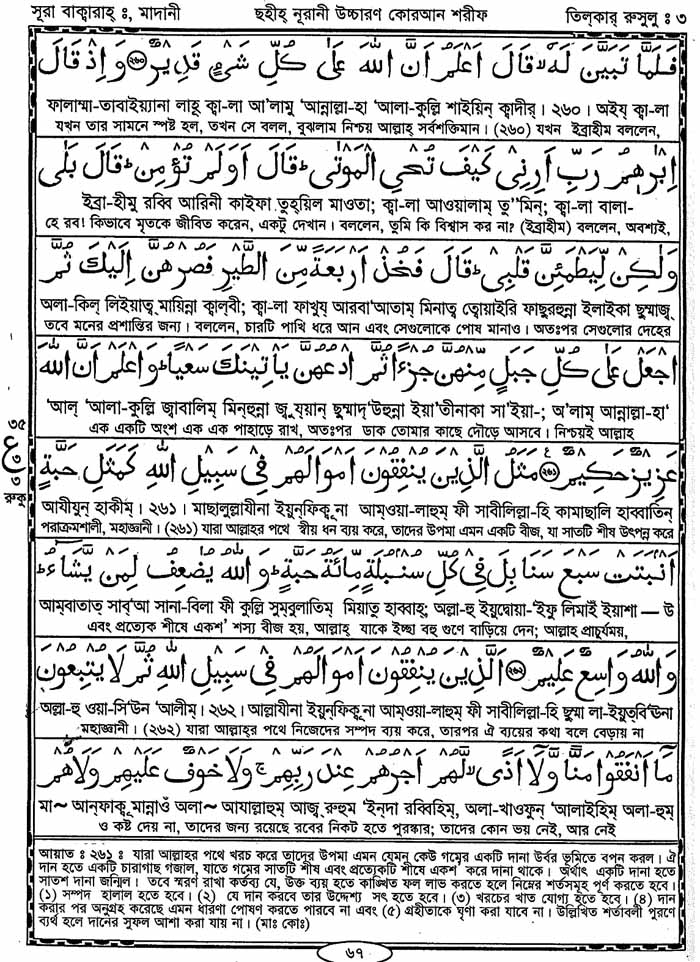 সূরা বাক্বারাহ্ ঃ, মাদানী ছহীহ্ নূরানী উচ্চারণ কোরআন শরীফ তিল্কার্ রুসুলু ঃ ৩
فَلَمَّا تَبَيَّنَ لَهٗ ۙ قَالَ اَعْلَمُ اَنَّ اللّٰهَ عَلٰى كُلِّ شَيْءٍ قَدِيْرٌ ﴿٢٥٩﴾ وَاِذْ قَالَ
ফালাম্মা-তাবাইয়্যানা লাহূ ক্বা-লা আ'লামু 'আন্নাল্লা-হা 'আলা-কুল্লি শাইয়িন্ ক্বাদীর্। ২৬০। অইয্ ক্বা-লা
যখন তার সামনে স্পষ্ট হল, তখন সে বলল, বুঝলাম নিশ্চয় আল্লাহ্ সর্বশক্তিমান। (২৬০) যখন ইব্রাহীম বললেন,
اِبْرٰهٖمُ رَبِّ اَرِنِيْ كَيْفَ تُحْيِ الْمَوْتٰى ؕ قَالَ اَوَلَمْ تُؤْمِنْ ؕ قَالَ بَلٰى
ইব্রা-হীমু রব্বি আরিনী কাইফা তুহ্য়িল মাওতা; ক্বা-লা আওয়ালাম্ তু"মিন্; ক্বা-লা বালা-
হে রব! কিভাবে মৃতকে জীবিত করেন, একটু দেখান। বললেন, তুমি কি বিশ্বাস কর না? (ইব্রাহীম) বললেন, অবশ্যই,
وَلٰكِنْ لِّيَطْمَئِنَّ قَلْبِيْ ؕ قَالَ فَخُذْ اَرْبَعَةً مِّنَ الطَّيْرِ فَصُرْهُنَّ اِلَيْكَ ثُمَّ
অলা-কিল্ লিইয়াত্ব্ মায়িন্না ক্বাল্বী; ক্বা-লা ফাখুয্ আরবা'আতাম্ মিনাত্ব ত্বোয়াইরি ফাছুরহুন্না ইলাইকা ছুম্মাজ্
তবে মনের প্রশান্তির জন্য। বললেন, চারটি পাখি ধরে আন এবং সেগুলোকে পোষ মানাও। অতঃপর সেগুলোর দেহের
اجْعَلْ عَلٰى كُلِّ جَبَلٍ مِّنْهُنَّ جُزْءًا ثُمَّ ادْعُهُنَّ يَاْتِيْنَكَ سَعْيًا ؕ وَاعْلَمْ اَنَّ اللّٰهَ
'আল্ 'আলা-কুল্লি জ্বাবালিম্ মিন্হুন্না জু্য্য়ান্ ছুম্মাদ্'উহুন্না ইয়া'তীনাকা সা'ইয়া-; অ'লাম্ আন্নাল্লা-হা'
এক একটি অংশ এক এক পাহাড়ে রাখ, অতঃপর ডাক তোমার কাছে দৌড়ে আসবে। নিশ্চয়ই আল্লাহ্
৩৫
ع
৩
৩
রুকূ
عَزِيْزٌ حَكِيْمٌ ﴿٢٦٠﴾ مَثَلُ الَّذِيْنَ يُنْفِقُوْنَ اَمْوَالَهُمْ فِيْ سَبِيْلِ اللّٰهِ كَمَثَلِ حَبَّةٍ
আযীযুন্ হাকীম্। ২৬১। মাছালুল্লাযীনা ইয়ুন্ফিক্বূনা আম্ওয়া-লাহুম্ ফী সাবীলিল্লা-হি কামাছালি হাব্বাতিন্
পরাক্রমশালী, মহাজ্ঞানী। (২৬১) যারা আল্লাহর পথে স্বীয় ধন ব্যয় করে, তাদের উপমা এমন একটি বীজ, যা সাতটি শীষ উৎপন্ন করে
اَنْۢبَتَتْ سَبْعَ سَنَابِلَ فِيْ كُلِّ سُنْۢبُلَةٍ مِّائَةُ حَبَّةٍ ؕ وَاللّٰهُ يُضٰعِفُ لِمَنْ يَّشَآءُ ؕ
আম্বাতাত্ সাব্'আ সানা-বিলা ফী কুল্লি সুম্বুলাতিম্ মিয়াতু হাব্বাহ্; অল্লা-হু ইয়ুদ্বোয়া-'ইফু লিমাইঁ ইয়াশা — উ
এবং প্রত্যেক শীষে একশ' শস্য বীজ হয়, আল্লাহ্ যাকে ইচ্ছা বহু গুণে বাড়িয়ে দেন; আল্লাহ প্রাচুর্যময়,
وَاللّٰهُ وَاسِعٌ عَلِيْمٌ ﴿٢٦١﴾ اَلَّذِيْنَ يُنْفِقُوْنَ اَمْوَالَهُمْ فِيْ سَبِيْلِ اللّٰهِ ثُمَّ لَا يُتْبِعُوْنَ
অল্লা-হু ওয়া-সি'উন 'আলীম্। ২৬২। আল্লাযীনা ইয়ুন্ফিক্বূনা আম্ওয়া-লাহুম্ ফী সাবীলিল্লা-হি ছুম্মা লা-ইয়ুত্বি'ঊনা
মহাজ্ঞানী। (২৬২) যারা আল্লাহ্‌র পথে নিজেদের সম্পদ ব্যয় করে, তারপর ঐ ব্যয়ের কথা বলে বেড়ায় না
مَآ اَنْفَقُوْا مَنًّا وَّلَآ اَذًى ۙ لَّهُمْ اَجْرُهُمْ عِنْدَ رَبِّهِمْ ۚ وَلَا خَوْفٌ عَلَيْهِمْ وَلَا هُمْ
মা ~ আন্ফাক্বূ মান্নাওঁ অলা ~ আযাল্লাহুম্ আজ্ব্ রুহুম 'ইন্দা রব্বিহিম্, অলা-খাওফুন্ 'আলাইহিম্ অলা-হুম্
ও কষ্ট দেয় না, তাদের জন্য রয়েছে রবের নিকট হতে পুরস্কার; তাদের কোন ভয় নেই, আর নেই
আয়াত ঃ ২৬১ ঃ যারা আল্লাহর পথে খরচ করে তাদের উপমা এমন যেমন কেউ গমের একটি দানা উর্বর ভূমিতে বপন করল। ঐ
দান হতে একটি চারাগাছ গজাল, যাতে গমের সাতটি শীষ এবং প্রত্যেকটি শীষে একশ' করে দানা থাকে। অর্থাৎ একটি দানা হতে
সাতশ দানা জন্মিল। তবে স্মরণ রাখা কর্তব্য যে, উক্ত ব্যয় হতে কাঙ্খিত ফল লাভ করতে হলে নিম্নের শর্তসমূহ পূর্ণ করতে হবে।
(১) সম্পদ হালাল হতে হবে। (২) যে দান করবে তার উদ্দেশ্য সৎ হতে হবে। (৩) খরচের খাত যোগ্য হতে হবে। (৪) দান
করার পর অনুগ্রহ করেছে এমন ধারণা পোষণ করতে পারবে না এবং (৫) গ্রহীতাকে ঘৃণা করা যাবে না। উল্লিখিত শর্তাবলী পুরণে
ব্যর্থ হলে দানের সুফল আশা করা যায় না। (মাঃ কোঃ)
৬৭